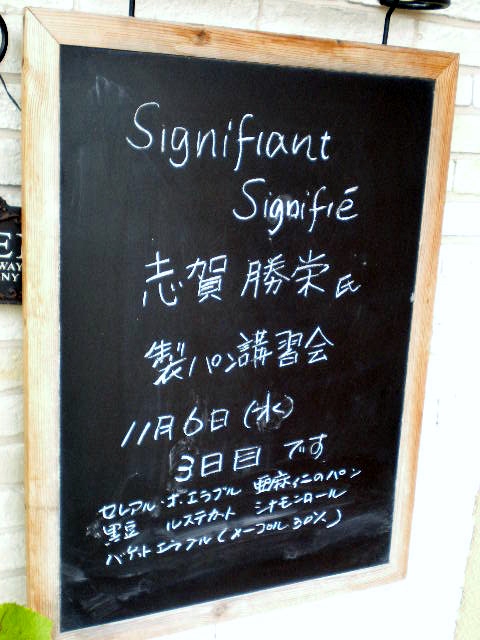 Signifiant
Signifié
志賀 勝栄氏
製パン講習会
11月6日(水)
3日目 です
セレアル・オ・エラブル 亜麻イニのパン
黒豆 ルステカット シナモンロール
バゲットエラブル(メープル30%)
WAY
NY